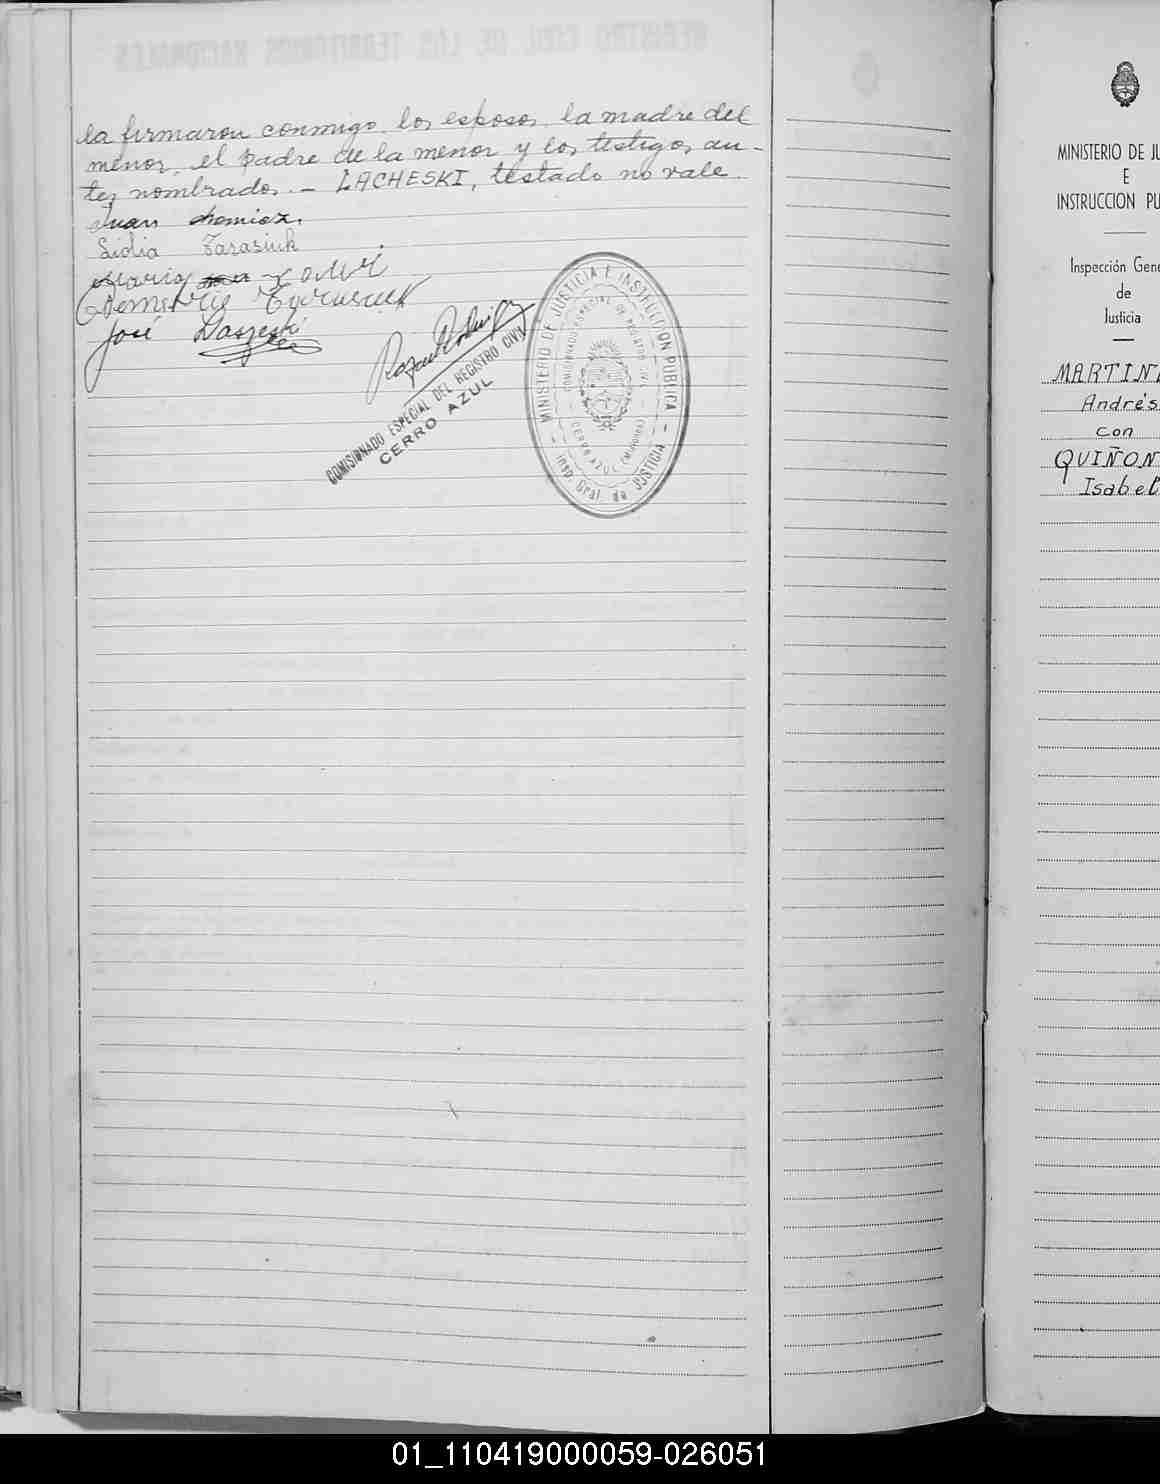 la firmaron conmigo los esposos, la madre del
menor, el padre de la menor y los testigos an-
tes nombrados. - LACHESKI, testado no vale.
Juan Chomicz.
Lidia Tarasiuk
María
Demetrio Tarasiuk
José Daszeski
COMISIONADO ESPECIAL DEL REGISTRO CIVIL
CERRO AZUL
MINISTERIO DE JUSTICIA E INSTRUCCION PUBLICA
COMISIONADO ESPECIAL DE REGISTRO CIVIL
CERRO AZUL (MISIONES)
Insp. Gral. de JUSTICIA
MINISTERIO DE JU
E
INSTRUCCION PU
Inspección Gene
de
Justicia
MARTIN
Andrés
con
QUIÑON
Isabel
01_110419000059-026051